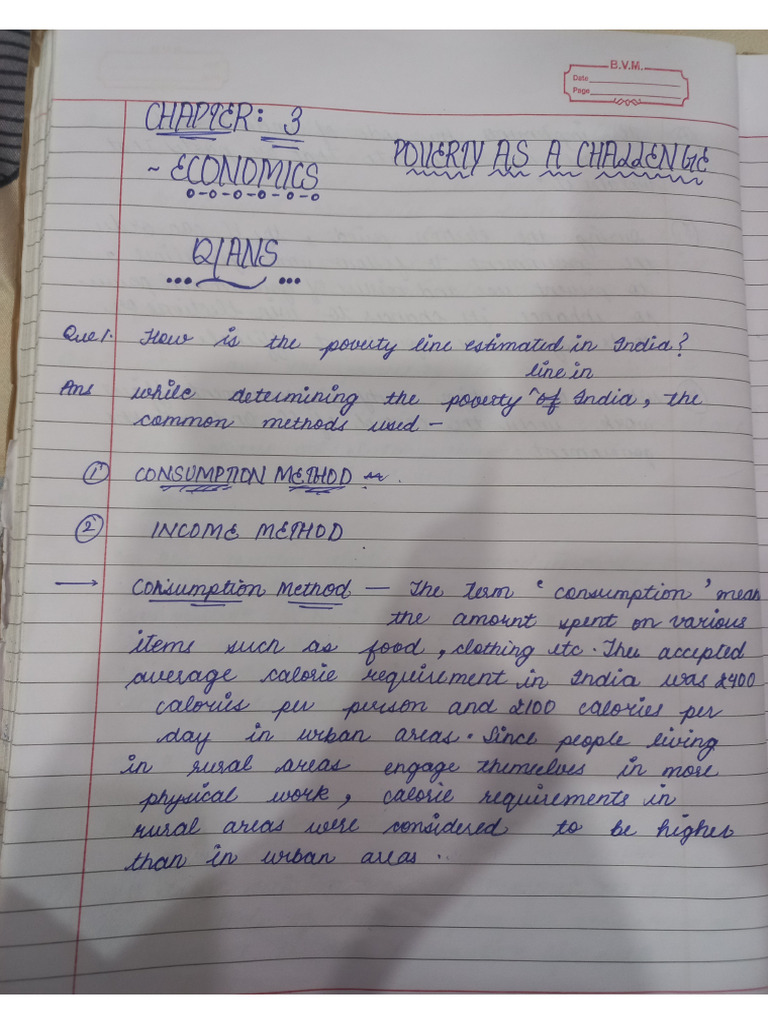 B.V.M.
Date
Page
CHAPTER: 3
POVERTY AS A CHALLENGE
~ ECONOMICS
Q/ANS
Que 1. How is the poverty line estimated in India?
line in
Ans while determining the poverty ^ of India, the
common methods used -
① CONSUMPTION METHOD
② INCOME METHOD
→ Consumption Method — The term ' consumption ' mean
the amount spent on various
items such as food, clothing etc. The accepted
average calorie requirement in India was 2400
calories per person and 2100 calories per
day in urban areas. Since people living
in rural areas engage themselves in more
physical work, calorie requirements in
rural areas were considered to be higher
than in urban areas ..